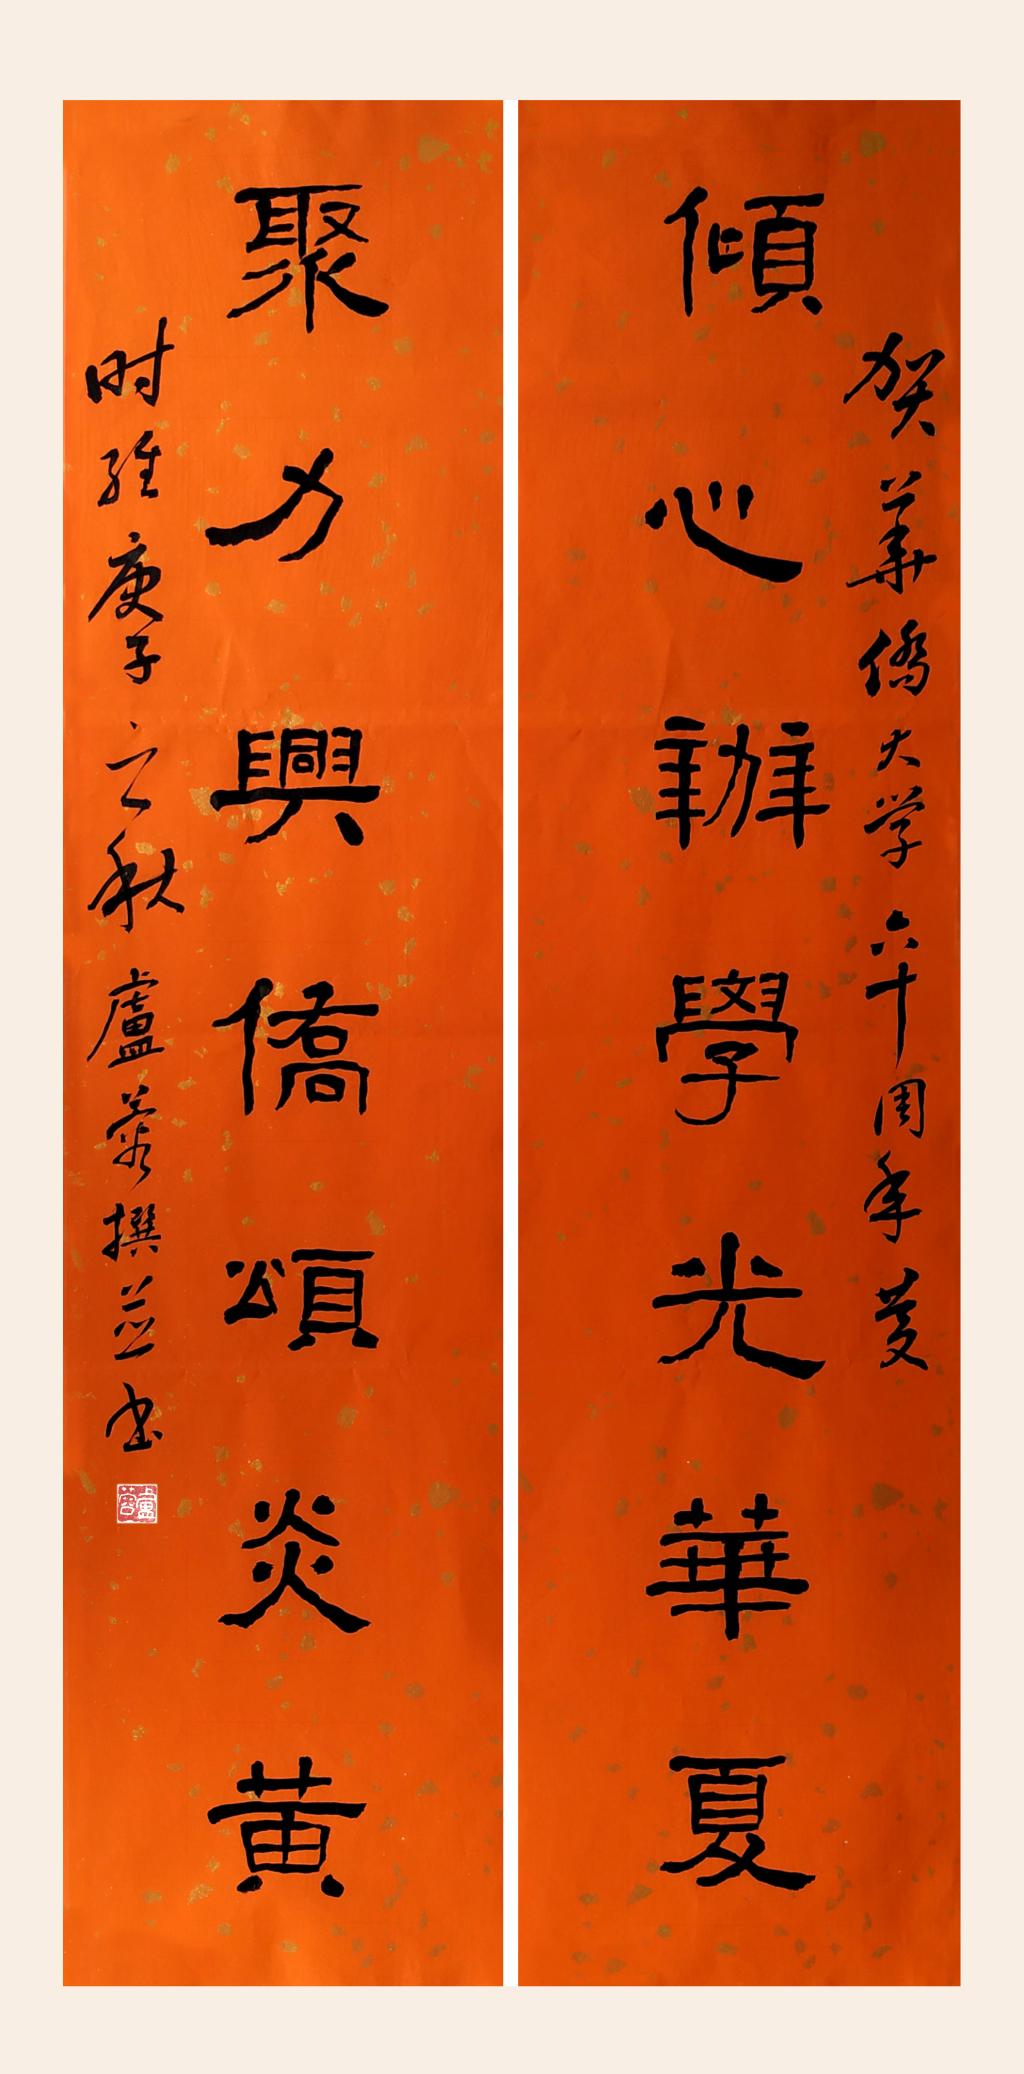 賀華僑大学六十周年慶
傾心辦學光華夏
聚力興僑頌炎黄
时維庚子之秋盧蓉撰並书